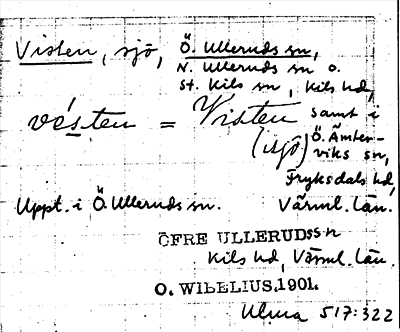 Visten, sjö, Ö. Ulleruds sn,
N. Ulleruds sn o.
St. Kils sn, Kils hd,
vésten = Visten samt i
(sjö) Ö. Ämter-
viks sn,
Fryksdals hd,
Uppt. i Ö. Ulleruds sn. Värml. län.
ÖFRE ULLERUDSsn
Kils hd, Värml. län.
O. WIBELIUS.1901.
Ulma 517:322